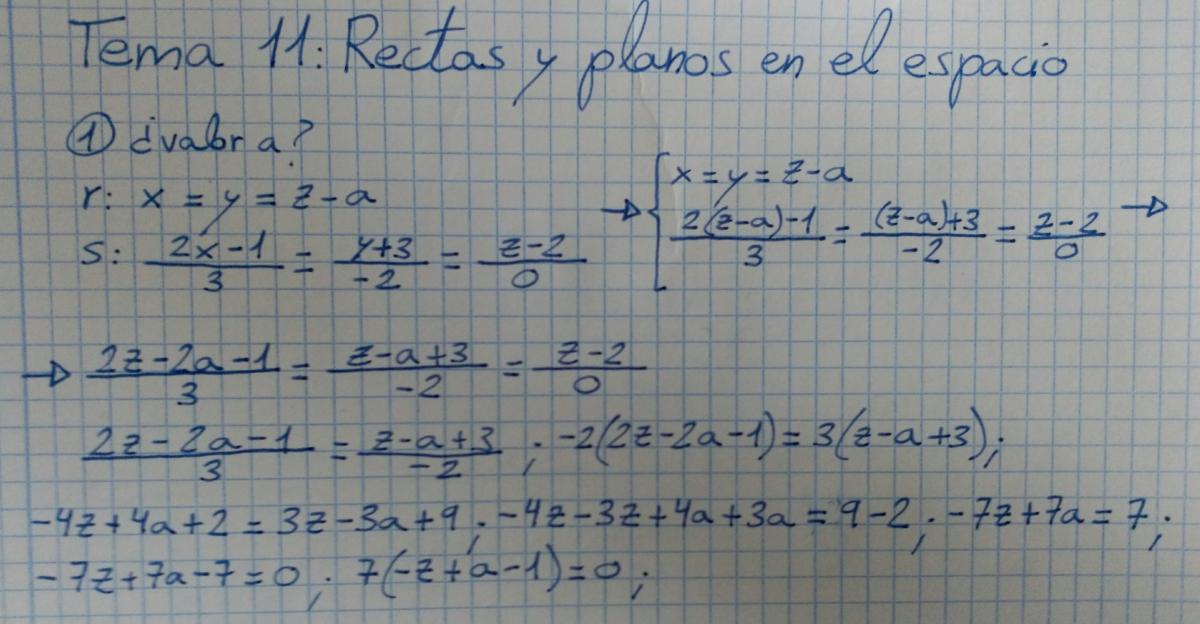 Tema 11: Rectas y planos en el espacio
① ¿valor a?
r: x = y = z - a
s: (2x - 1)/3 = (y + 3)/-2 = (z - 2)/0
→ { x = y = z - a
(2(z - a) - 1)/3 = ((z - a) + 3)/-2 = (z - 2)/0 →
→ (2z - 2a - 1)/3 = (z - a + 3)/-2 = (z - 2)/0
(2z - 2a - 1)/3 = (z - a + 3)/-2 ; -2(2z - 2a - 1) = 3(z - a + 3);
-4z + 4a + 2 = 3z - 3a + 9 ; -4z - 3z + 4a + 3a = 9 - 2 ; -7z + 7a = 7 ;
-7z + 7a - 7 = 0 ; 7(-z + a - 1) = 0 ;